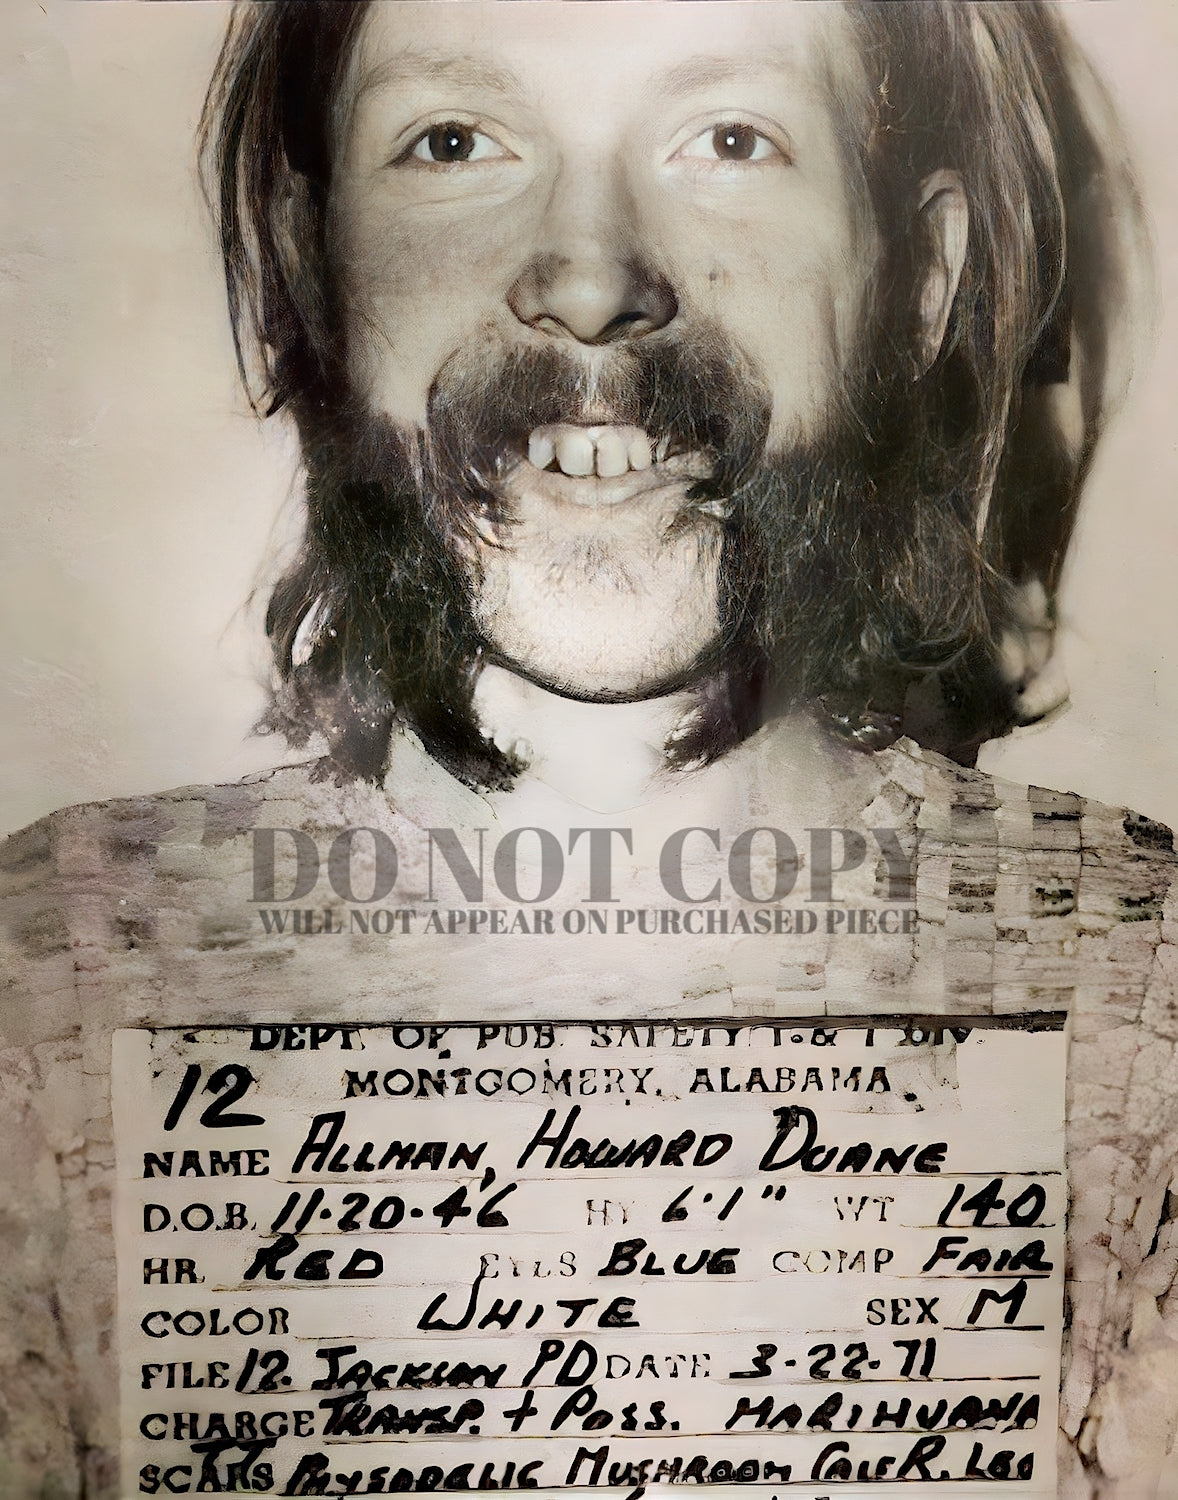 DO NOT COPY
WILL NOT APPEAR ON PURCHASED PIECE
DEPT OF PUB. SAFETY I. & I DIV.
12 MONTGOMERY, ALABAMA
NAME ALLMAN, HOWARD DUANE
D.O.B. 11-20-46 HT 6'1" WT 140
HR. RED EYES BLUE COMP FAIR
COLOR WHITE SEX M
FILE 12. JACKSON PD DATE 3-22-71
CHARGE TRANSP. + POSS. MARIHUANA
SCARS MUSHROOM CALF R. LEG